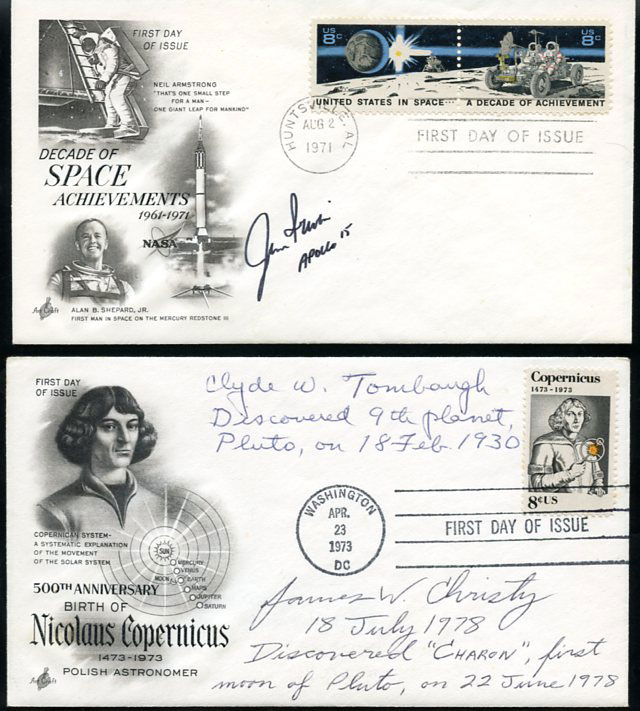 FIRST DAY
OF ISSUE
NEIL ARMSTRONG
"THAT'S ONE SMALL STEP
FOR A MAN—
ONE GIANT LEAP FOR MANKIND"
DECADE OF
SPACE
ACHIEVEMENTS
1961-1971
NASA
ALAN B. SHEPARD, JR.
FIRST MAN IN SPACE ON THE MERCURY REDSTONE III
Art Craft
US 8c
US 8c
UNITED STATES IN SPACE... A DECADE OF ACHIEVEMENT
HUNTSVILLE, AL
AUG 2
1971
FIRST DAY OF ISSUE
Jim Irwin
APOLLO 15
FIRST DAY
OF ISSUE
Clyde W. Tombaugh
Discovered 9th planet,
Pluto, on 18 Feb. 1930
Copernicus
1473-1973
8¢US
WASHINGTON
APR.
23
1973
DC
FIRST DAY OF ISSUE
COPERNICAN SYSTEM-
A SYSTEMATIC EXPLANATION
OF THE MOVEMENT
OF THE SOLAR SYSTEM
SUN
MERCURY
VENUS
MOON
EARTH
MARS
JUPITER
SATURN
500TH ANNIVERSARY
BIRTH OF
Nicolaus Copernicus
1473-1973
POLISH ASTRONOMER
Art Craft
James W. Christy
18 July 1978
Discovered "CHARON", first
moon of Pluto, on 22 June 1978